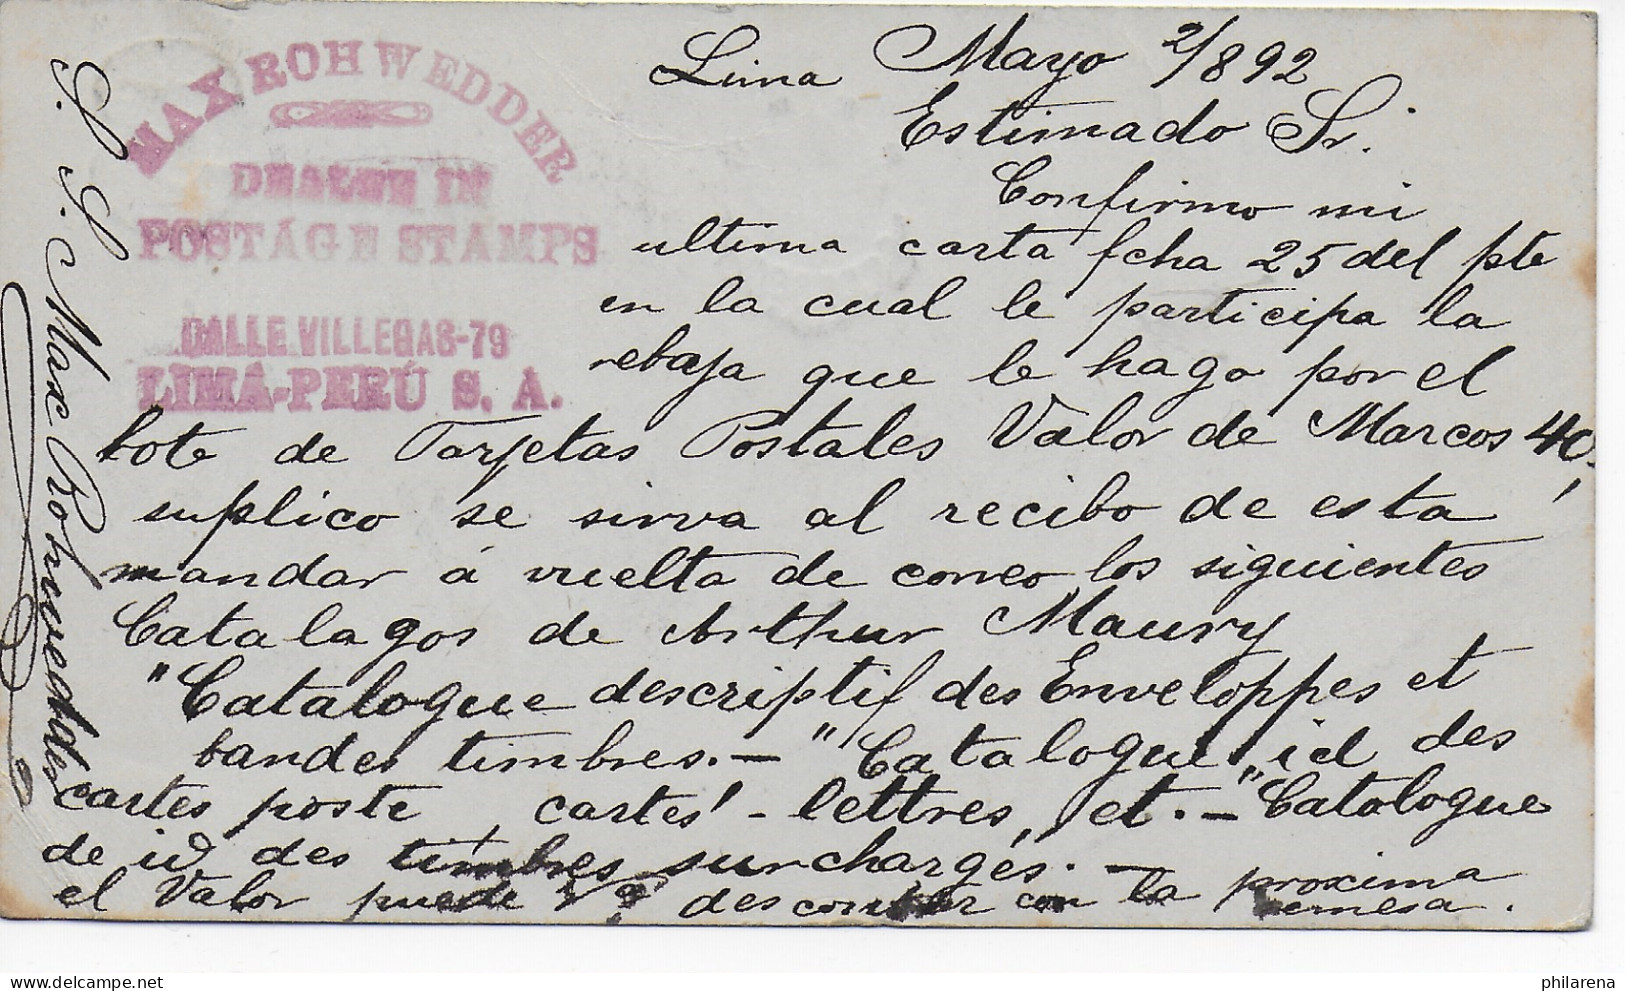 MAX ROHWEDDER
DEALER IN
POSTAGE STAMPS
CALLE VILLEGAS-79
LIMA-PERÚ S. A.
Lima Mayo 2/892
Estimado Sr.
Confirmo mi
ultima carta fcha 25 del pte
en la cual le participa la
rebaja que le hago por el
lote de Tarjetas Postales Valor de Marcos 40,
suplico se sirva al recibo de esta
mandar á vuelta de correo los siguientes
Catalagos de Arthur Maury
"Catalogue descriptif des Enveloppes et
bandes timbres.- "Catalogue id des
cartes poste cartes'-lettres, et.- "Catologue
de id des timbres surchargés.-
el Valor puede descontar con la proxima
remesa.
S. S. Max Rohwedder
philarena